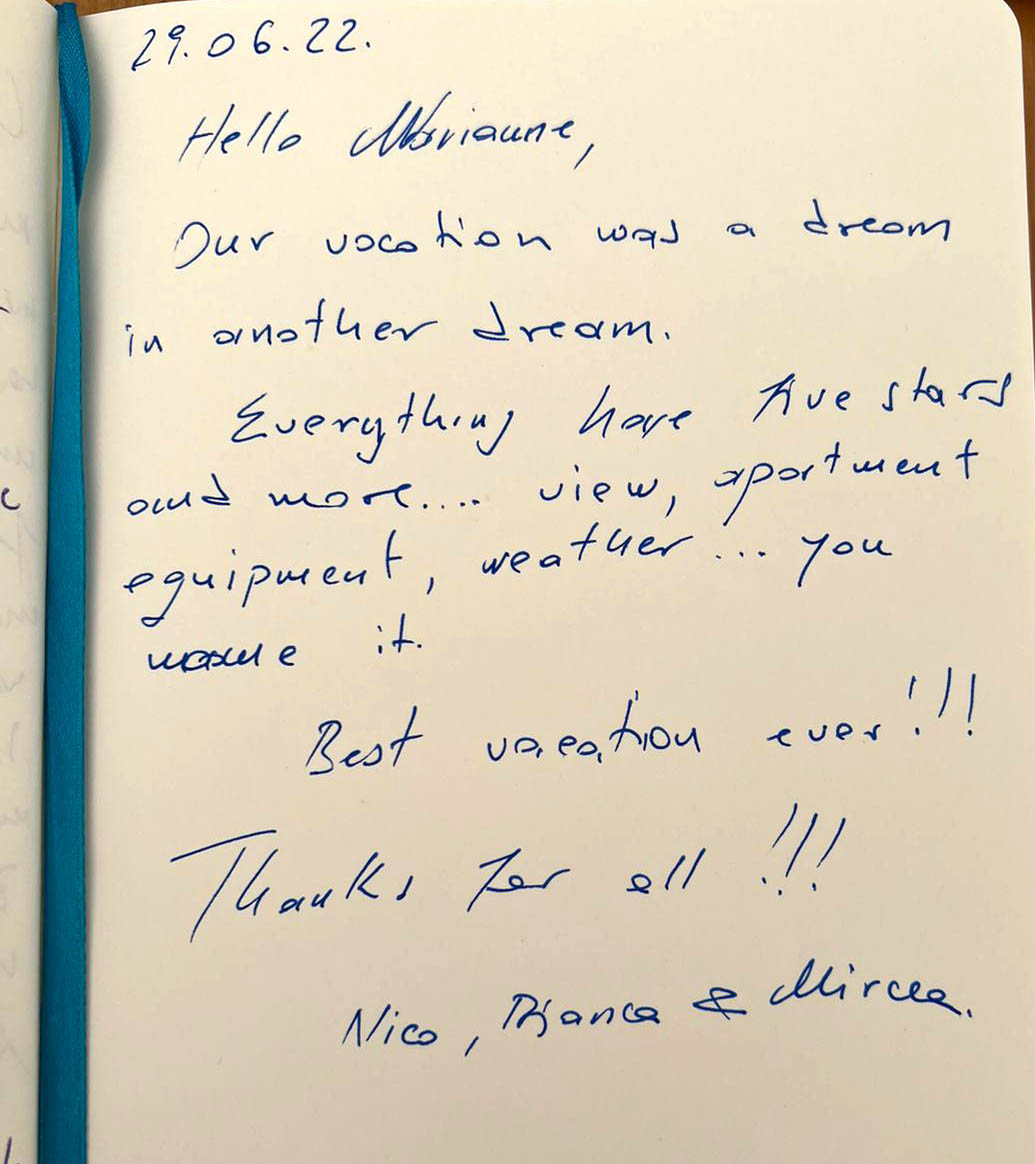 29.06.22.
Hello Marianne,
Our vacation was a dream
in another dream.
Everything have five stars
and more.... view, apartment
equipment, weather... you
name it.
Best vacation ever!!!
Thanks for all!!!
Nico, Bianca & Mircea.